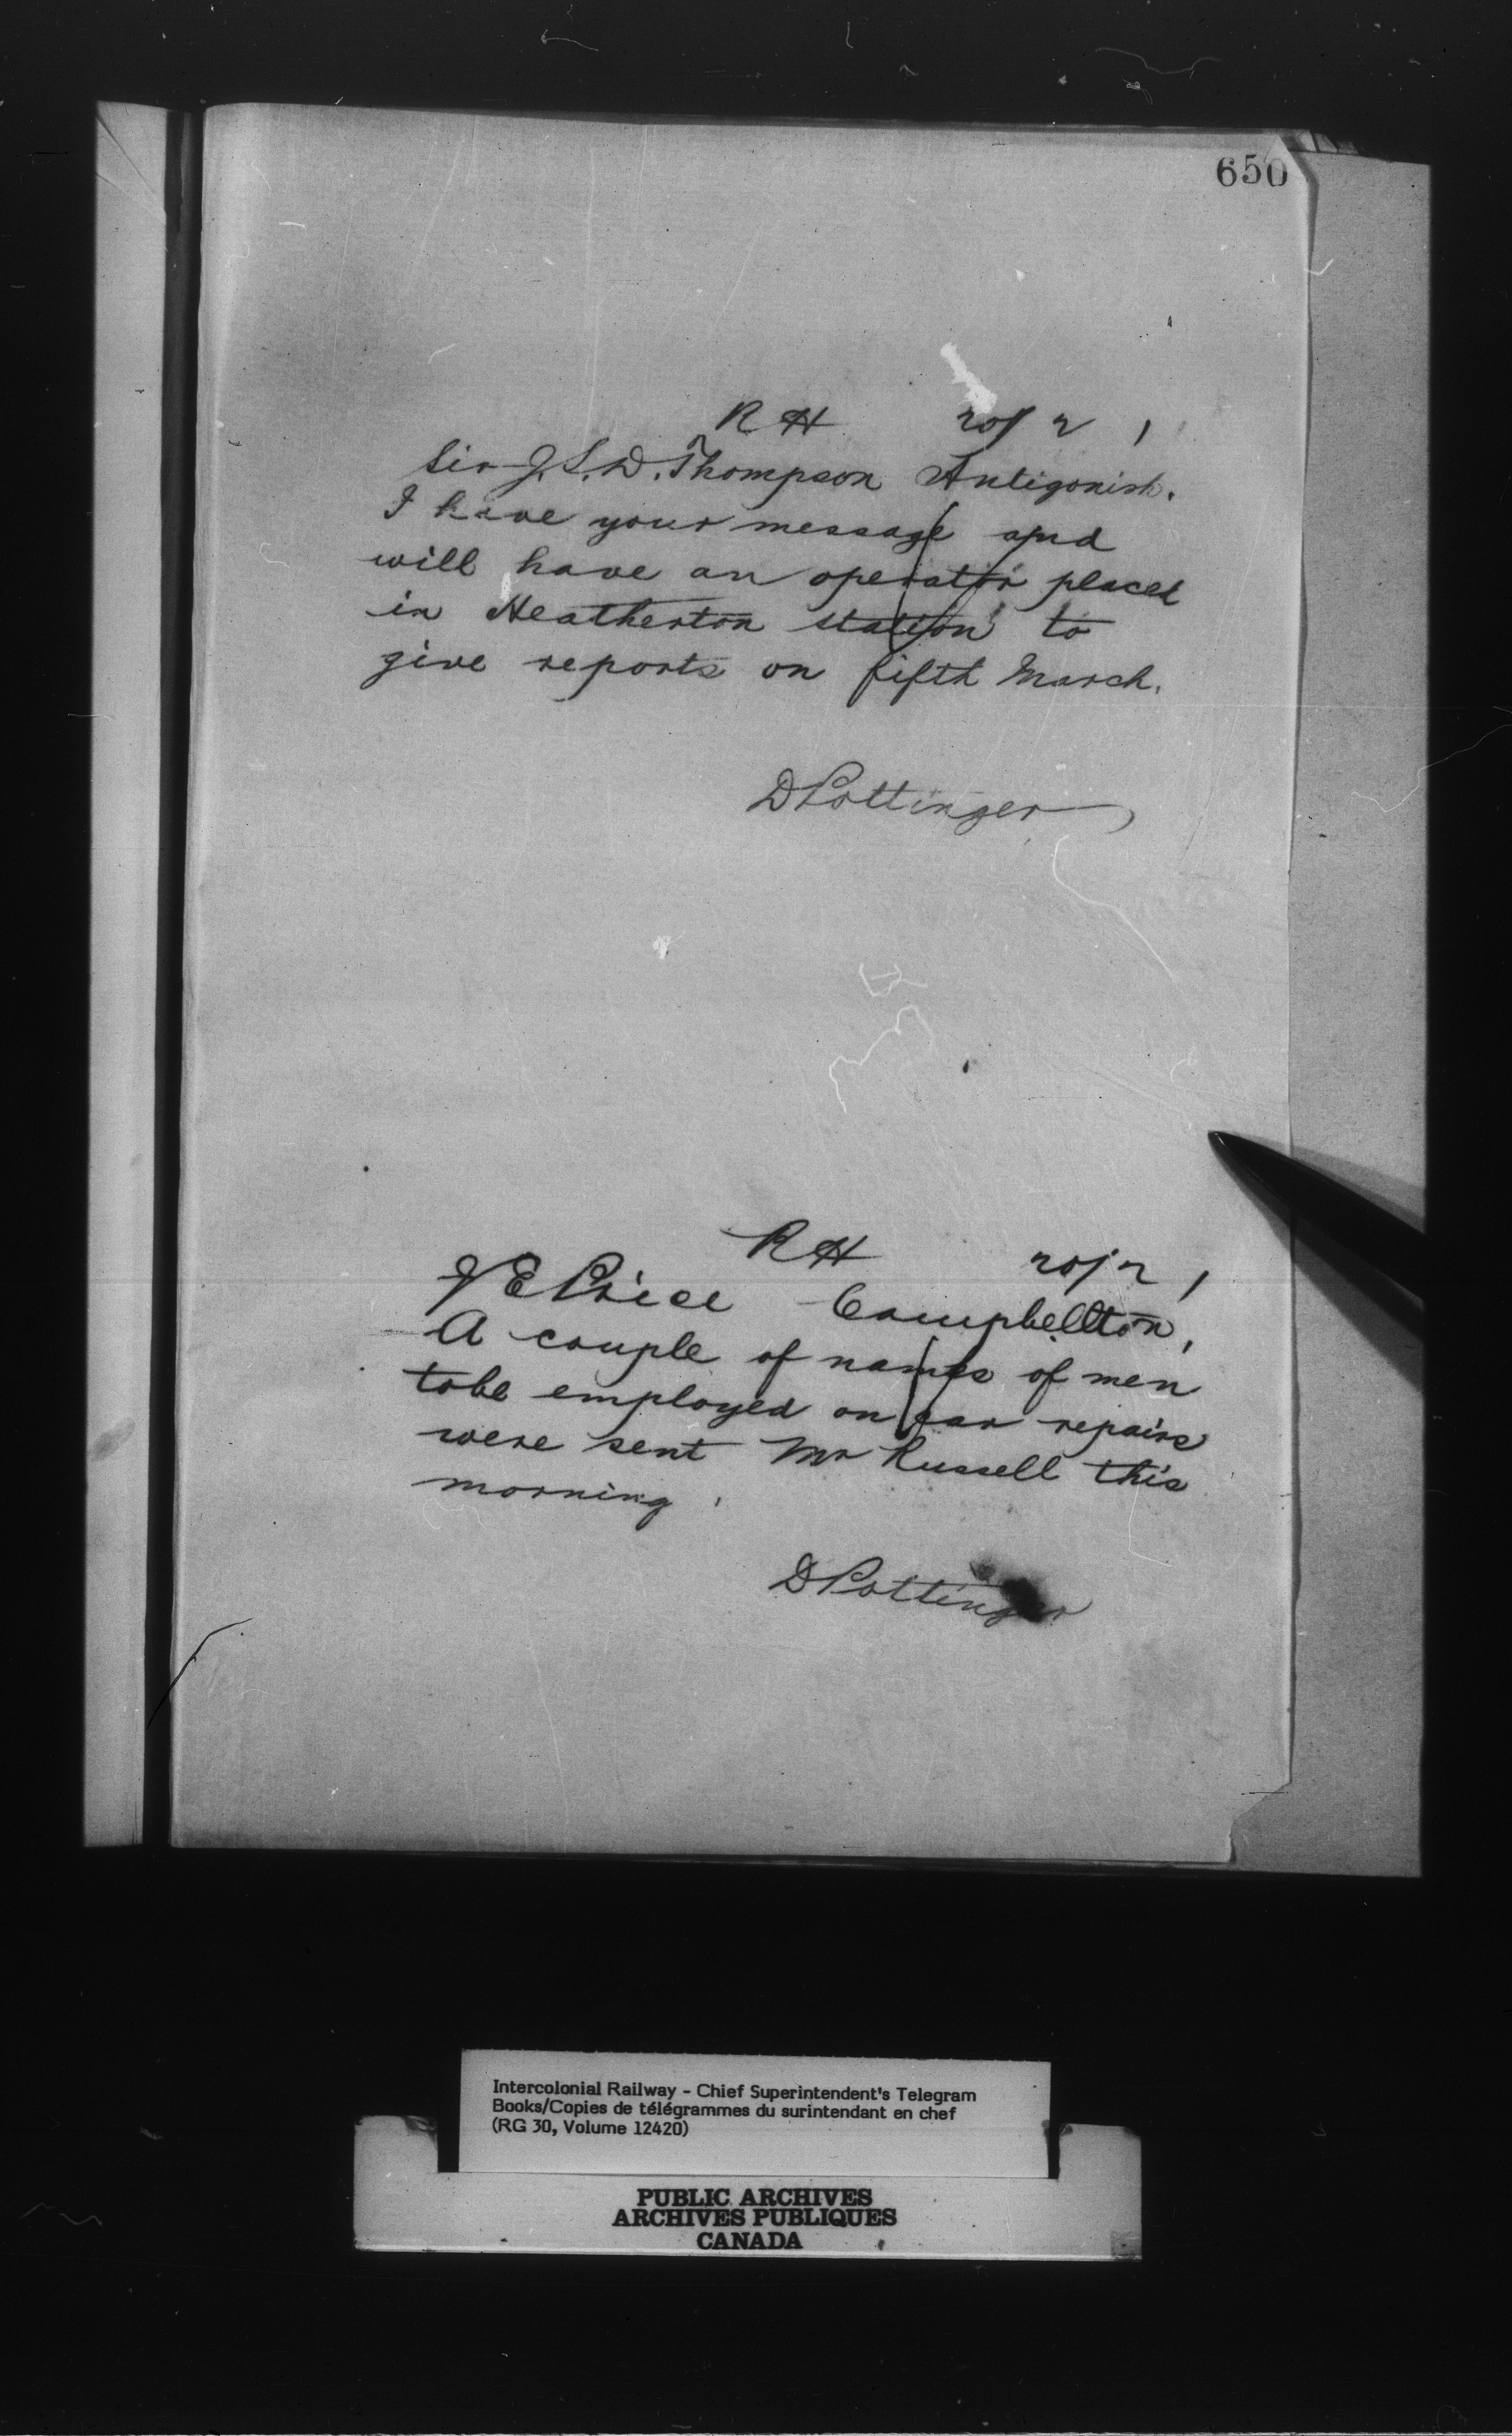 650
RH 20/2 1
Sir J.S.D. Thompson Antigonish.
I have your message and
will have an operator placed
in Heatherton station to
give reports on fifth March.
D Pottinger
RH 20/2 1
J E Price Campbellton,
A couple of names of men
tobe employed on car repairs
were sent Mr Russell this
morning.
D Pottinger
Intercolonial Railway - Chief Superintendent's Telegram
Books/Copies de télégrammes du surintendant en chef
(RG 30, Volume 12420)
PUBLIC ARCHIVES
ARCHIVES PUBLIQUES
CANADA